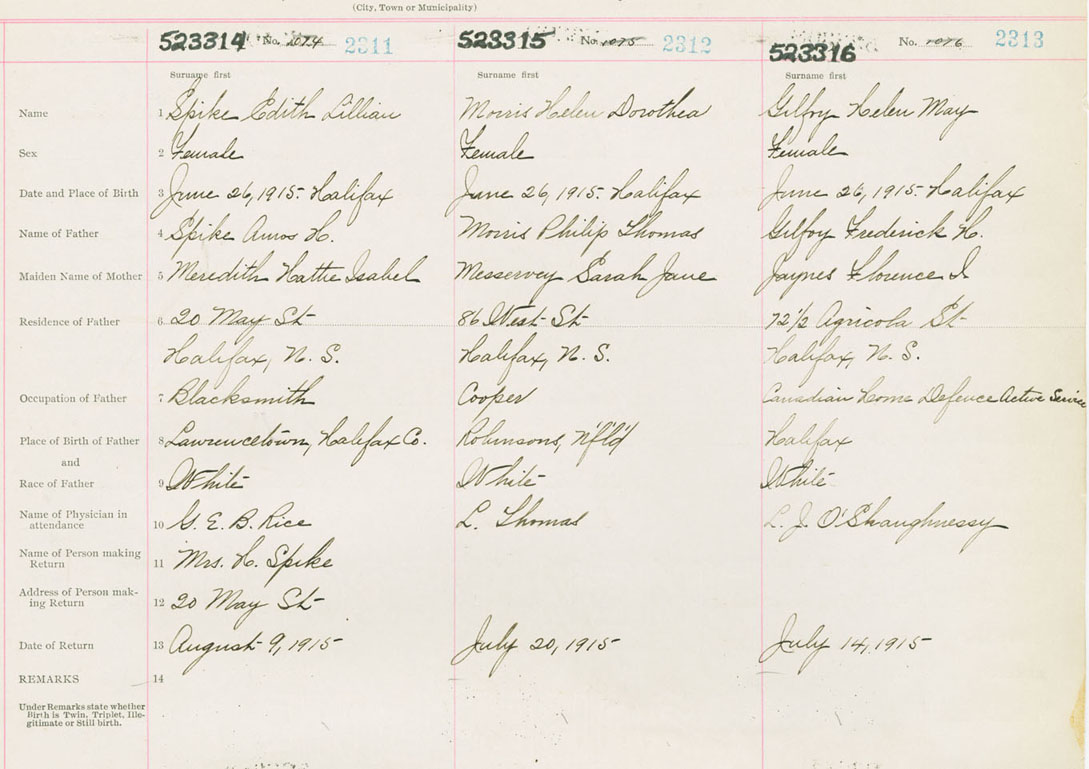 (City, Town or Municipality)
523314 No. 1074 2311 523315 No. 1075 2312 523316 No. 1076 2313
Surname first Surname first Surname first
Name 1 Spike Edith Lillian Morris Helen Dorothea Gilfoy Helen May
Sex 2 Female Female Female
Date and Place of Birth 3 June 26, 1915. Halifax June 26, 1915. Halifax June 26, 1915 Halifax
Name of Father 4 Spike Amos H. Morris Philip Thomas Gilfoy Frederick H.
Maiden Name of Mother 5 Meredith Hattie Isabel Messervey Sarah Jane Jaynes Florence I
Residence of Father 6 20 May St 86 West St 72 1/2 Agricola St
Halifax, N. S. Halifax, N. S. Halifax, N. S.
Occupation of Father 7 Blacksmith Cooper Canadian Home Defence Active Service
Place of Birth of Father 8 Lawrencetown, Halifax Co. Robinsons, N'f'l'd Halifax
and
Race of Father 9 White White White
Name of Physician in
attendance 10 G. E. B. Rice L. Thomas L. J. O'Shaughnessy
Name of Person making
Return 11 Mrs. H. Spike
Address of Person mak-
ing Return 12 20 May St
Date of Return 13 August 9, 1915 July 20, 1915 July 14, 1915
REMARKS 14
Under Remarks state whether
Birth is Twin, Triplet, Ille-
gitimate or Still birth.